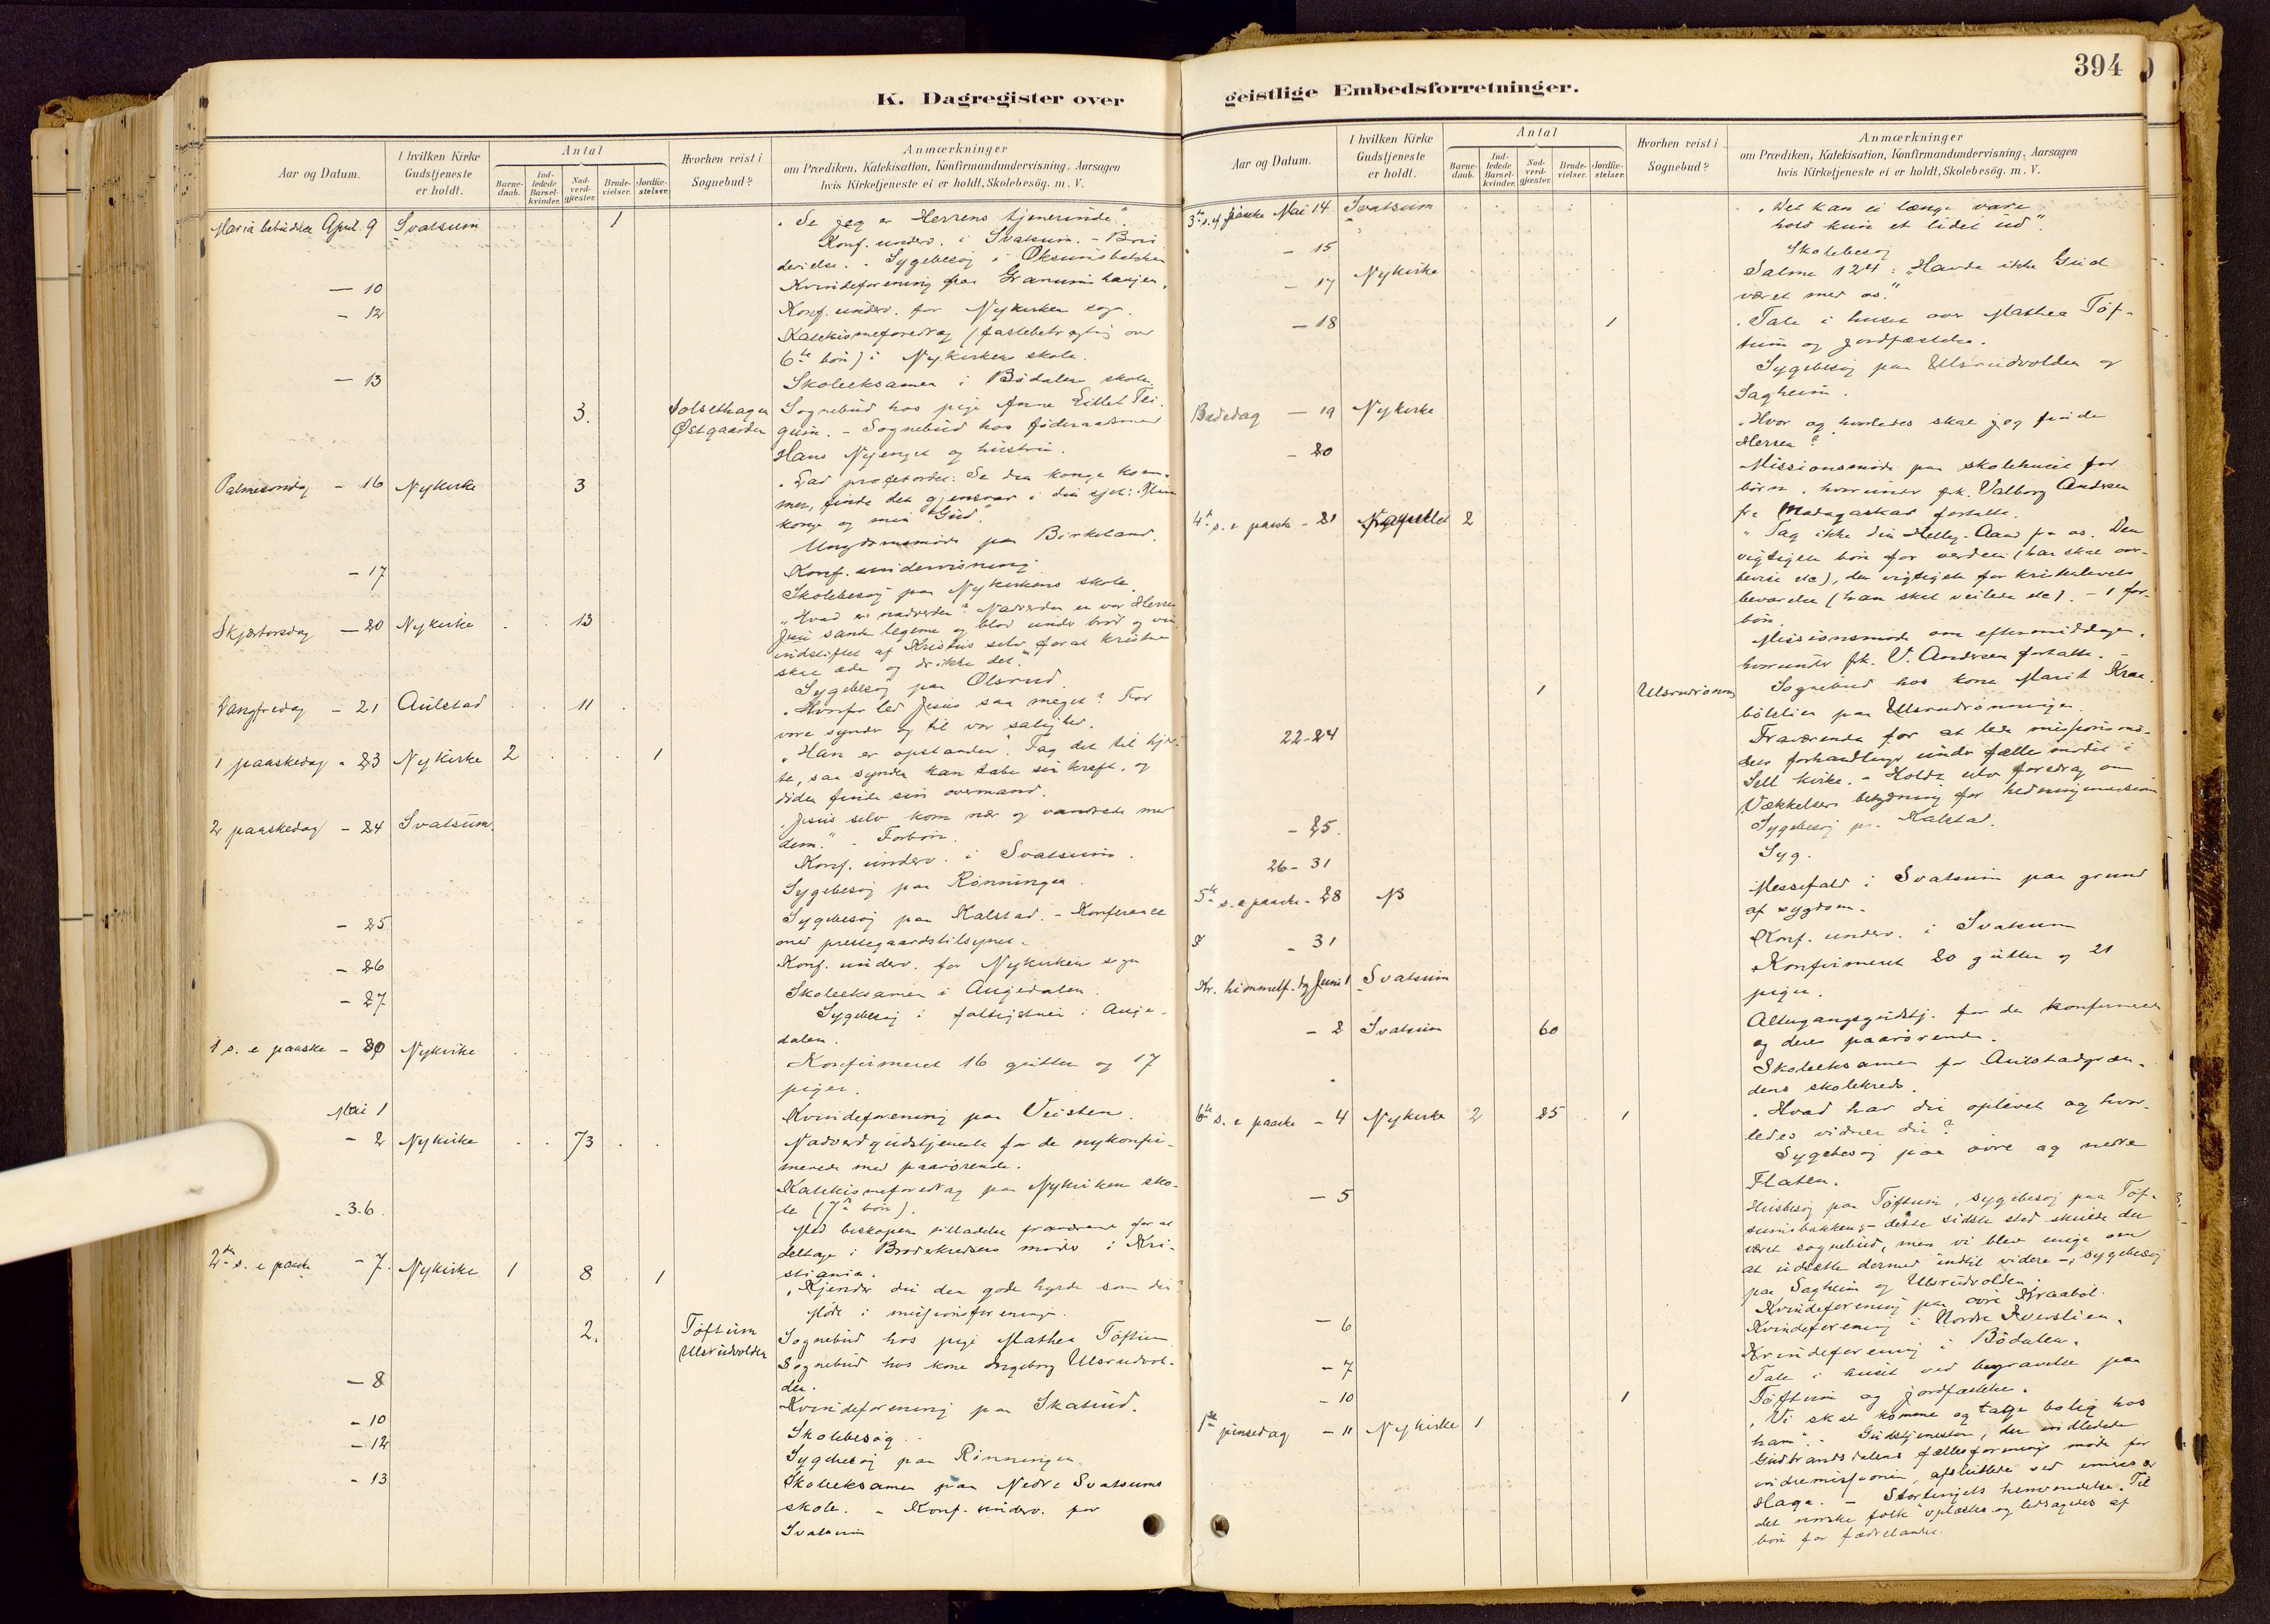 K. Dagregister over
Aar og Datum.
I hvilken Kirke Gudstjeneste er holdt.
Antal
Barne-daab.
Ind-ledede Barsel-kvinder.
Nad-verd-gjæster.
Brude-vielser.
Jordfæ-stelser.
Hvorhen reist i Sognebud?
Anmærkninger
om Prædiken, Katekisation, Konfirmandundervisning, Aarsagen
hvis Kirketjeneste ei er holdt, Skolebesög. m. V.
Maria bebudelse April 9 Svatsum 1 "Se jeg er Herrens tjenerinde".
Konf. underv. i Svatsum. -
Sygebesøg i
— 10 Kvindeforening paa Granumhaugen.
— 12 Konf. underv. for Nykirken sogn.
Katekismeforedrag (fastebetragtning over
6te bön) i Nykirkens skole.
— 13 Skoleeksamen i Bödalen skole.
3. Solsethagen Sognebud hos pige Anne
Östgaarden - Sognebud hos föderaadsmand
Hans Nyenget og hustru.
Palmesöndag - 16 Nykirke 3 "Lad profetordet: Se din konge kom-
mer, finde det gjensvar i din sjæl: Min
konge og min Gud".
Ungdomsmöde paa Birkeland.
— 17 Konf. undervisning
Skolebesøg paa Nykirkens skole.
Skjærtorsdag — 20 Nykirke 13 "Hvad er nadverden? Nadverden er vor Herre
Jesu sande legeme og blod under bröd og vin
indstiftet af Kristus selv for at kristne
skal æde og drikke det."
Sygebesøg paa Olsrud.
Langfredag — 21 Aulstad 11 "Hvorfor led Jesus saa meget? For
vore synder og til vor salighed.
1 paaskedag - 23 Nykirke 2 1 "Han er opstanden". Tag det til hjer-
te, saa synden kan tabe sin kraft, og
döden finde sin overmand.
2 paaskedag - 24 Svatsum. "Jesus selv kom nær og vandrede med
dem." - Forbön.
Konf. underv. i Svatsum.
Sygebesøg paa Rönningen.
- 25 Sygebesøg paa Kalstad. - Konference
med prestegaardstilsynet.
- 26 Konf. underv. for Nykirken sogn
- 27 Skoleeksamen i Augedalen.
Sygebesøg i fattigstuen i Auge-
dalen.
1 s. e paaske - 30 Nykirke Konfirmeret 16 gutter og 17
piger.
Mai 1 Kvindeforening paa Veisten.
- 2 Nykirke 73 Nadverdgudstjeneste for de nykonfir-
merede med paarörende.
Katekismeforedrag paa Nykirken sko-
le (7de bön).
- 3-6. Med biskopens tilladelse fraværende for at
deltage i Broderkredsens möde i Kri-
stiania.
2den s. e paaske - 7. Nykirke 1 8 1 "Kjender du den gode hyrde som din?
Möde i missionsforeningen.
2. Töftum Sognebud hos pige Mathea Töftum
Ulsrudvolden Sognebud hos kone Ingeborg Ulsrudvol-
den.
— 8 Kvindeforening paa Skatrud.
- 10 Skolebesøg.
- 12 Sygebesøg paa Rönningen
- 13 Skoleeksamen paa Nedre Svatsums
skole. - Konf. underv. for
Svatsum
394
geistlige Embedsforretninger.
Aar og Datum.
I hvilken Kirke Gudstjeneste er holdt.
Antal
Barne-daab.
Ind-ledede Barsel-kvinder.
Nad-verd-gjæster.
Brude-vielser.
Jordfæ-stelser.
Hvorhen reist i Sognebud?
Anmærkninger
om Prædiken, Katekisation, Konfirmandundervisning, Aarsagen
hvis Kirketjeneste ei er holdt, Skolebesög. m. V.
3de s. e paaske Mai 14 Svatsum "Det kan ei længe være
hold kun et lidet ud".
- 15 Skolebesøg
- 17 Nykirke Salme 124: "Havde ikke Gud
været med os."
- 18 1 Tale i huset over Mathea Töf-
tum og jordfæstelse.
Sygebesøg paa Ulsrudvolden og
Sagheim.
Bededag — 19 Nykirke "Hvor og hvorledes skal jeg finde
Herren?
- 20 Missionsmöde paa skolehuset for
börn, hvorunder frk. Valborg Andersen
fra Madagaskar fortalte.
4de s. e paaske - 21 2 "Tag ikke din Hellig-Aand fra os. Den
vigtigste bön for verden (han skal over-
bevise etc), den vigtigste for kristenlivets
bevarelse (han skal veilede etc). - 1 for-
bön.
Missionsmöde om eftermiddagen,
hvorunder frk. V. Andersen fortalte.
1 Ulsrudrönning Sognebud hos kone Marit Kraa-
bölslien paa Ulsrudrönningen.
22-24 Fraværende for at lede missionsmö-
dets forhandlinger under fællesmödet i
kirke. - Holdt selv foredrag om
Vækkelsers betydning for hedningemissionen
- 25. Sygebesøg paa Kalstad.
26 - 31 Syg.
5te s. e paaske - 28 Messefald i Svatsum paa grund
af sygdom.
- 31 Konf. underv. i Svatsum
Kr. himmelf. dg Juni 1 Svatsum Konfirmeret 20 gutter og 21
piger.
- 2 Svatsum 60 Altergangsgudstj. for de konfirmerede
og deres paarörende.
Skoleeksamen for Aulstadgren-
dens skolekreds.
6te s. e paaske - 4 Nykirke 2 25 1 "Hvad har du oplevet og hvor-
ledes vidner du?
Sygebesøg paa övre og nedre
Flaten.
- 5 Husbesøg paa Töftum, sygebesøg paa Töf-
tumsbakken; - dette sidste sted skulde der
været sognebud, men vi blev enige om
at udsætte dermed indtil videre -, sygebesøg
paa Sagheim og Ulsrudvolden.
Kvindeforening paa övre Kraaböl.
— 6 Kvindeforening i Nordre Iverslien.
- 7 Kvindeforening i Bödalen.
- 10 1 Tale i huset ved begravelse paa
Töftum og jordfæstelse.
1ste pinsedag - 11 Nykirke 1 "Vi skal komme og tage bolig hos
ham". - Gudstjenesten, der indledede
Gudbrandsdalens fællesforenings möde for
indremissionen, afsluttede ved emissær
Haga. - Stortingets henvendelse "Til
det norske folk" oplæstes og ledsagedes af
bön for fædrelandet.